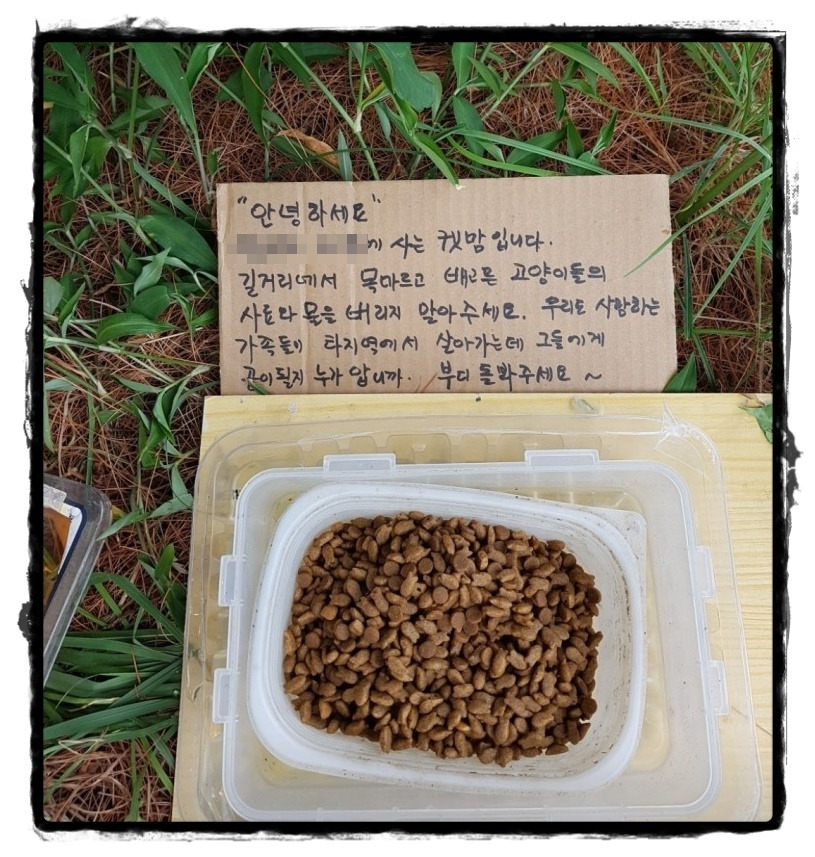 "안녕하세요"
에 사는 캣맘입니다.
길거리에서 목마르고 배고픈 고양이들의
사료와 물을 버리지 말아주세요. 우리도 사랑하는
가족들이 타지역에서 살아가는데 그들에게
곧이될지 누가 압니까. 부디 돌봐주세요 ~